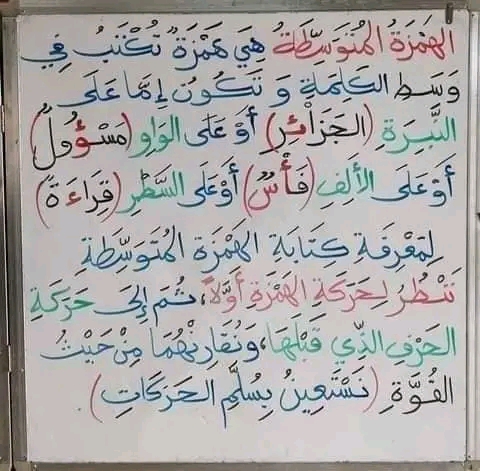 الهَمْزَةُ المُتَوَسِّطَةُ هِيَ هَمْزَةٌ تُكْتَبُ فِي
وَسَطِ الكَلِمَةِ وَ تَكُونُ إِمَّا عَلَى
النَّبِرَةِ (الجَزَائِرُ) أَوْ عَلَى الوَاوِ (مَسْؤُولٌ)
أَوْ عَلَى الأَلِفِ (فَأْسٌ) أَوْ عَلَى السَّطْرِ (قِرَاءَةٌ)
لِمَعْرِفَةِ كِتَابَةِ الهَمْزَةِ المُتَوَسِّطَةِ
نَنْظُرُ لِحَرَكَةِ الهَمْزَةِ أَوَّلاً، ثُمَّ إِلَى حَرَكَةِ
الحَرْفِ الَّذِي قَبْلَهَا، وَنُقَارِنُهُمَا مِنْ حَيْثُ
القُوَّةِ (نَسْتَعِينُ بِسُلَّمِ الحَرَكَاتِ).